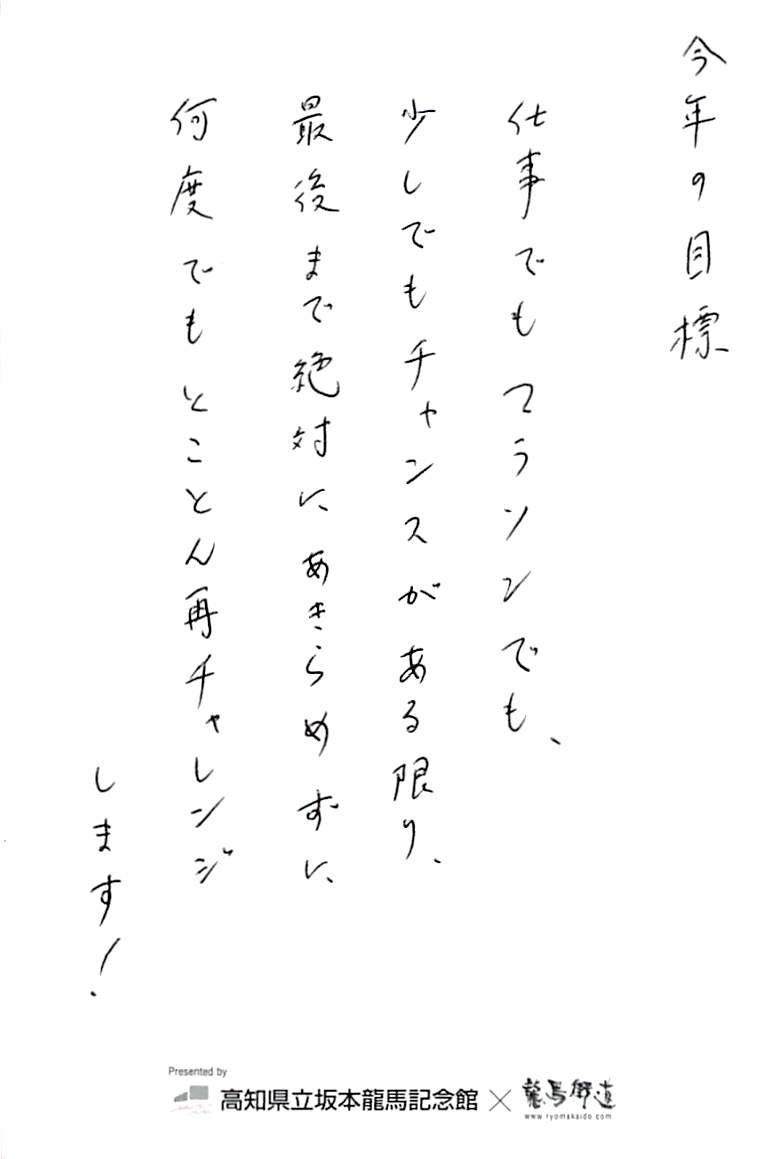 今年の目標
仕事でもマラソンでも、
少しでもチャンスがある限り、
最後まで絶対にあきらめずに、
何度でもとことん再チャレンジ
します!
Presented by
高知県立坂本龍馬記念館×龍馬街道
www.ryomakaido.com